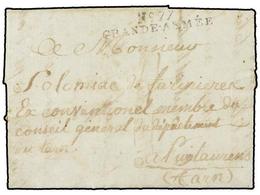 No 77
GRANDE-ARMÉE
A Monsieur
Solomiac de farinieres
Ex conventionel membre du
conseil général du département
du tarn
a Puylaurens
(Tarn)